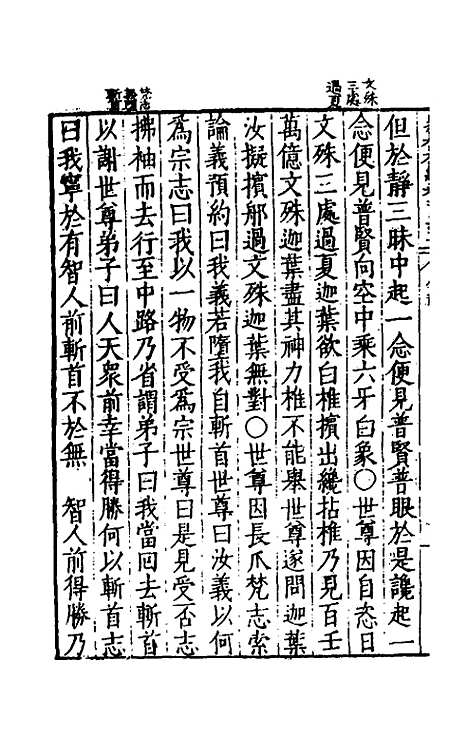 文殊
三處
過夏
但於靜三昧中起一念便見普賢普眼於是讒起一
念便見普賢向空中乘六牙白象〇世尊因自恣日
文殊三處過夏迦葉欲白椎擯出纔拈椎乃見百壬
萬億文殊迦葉盡其神力椎不能舉世尊遂問迦葉
汝擬擯那過文殊迦葉無對〇世尊因長爪梵志索
論義預約曰我義若墮我自斬首世尊曰汝義以何
爲宗志曰我以一物不受爲宗世尊曰是見受否志
拂袖而去行至中路乃省謂弟子曰我當回去斬首
以謝世尊弟子曰人天衆前幸當得勝何以斬首志
曰我寧於有智人前斬首不於無 智人前得勝乃